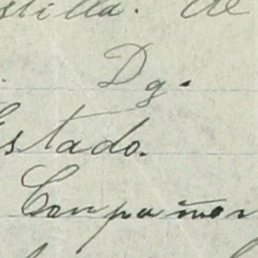 stilla. de
Dg.
Estado.
Compañon